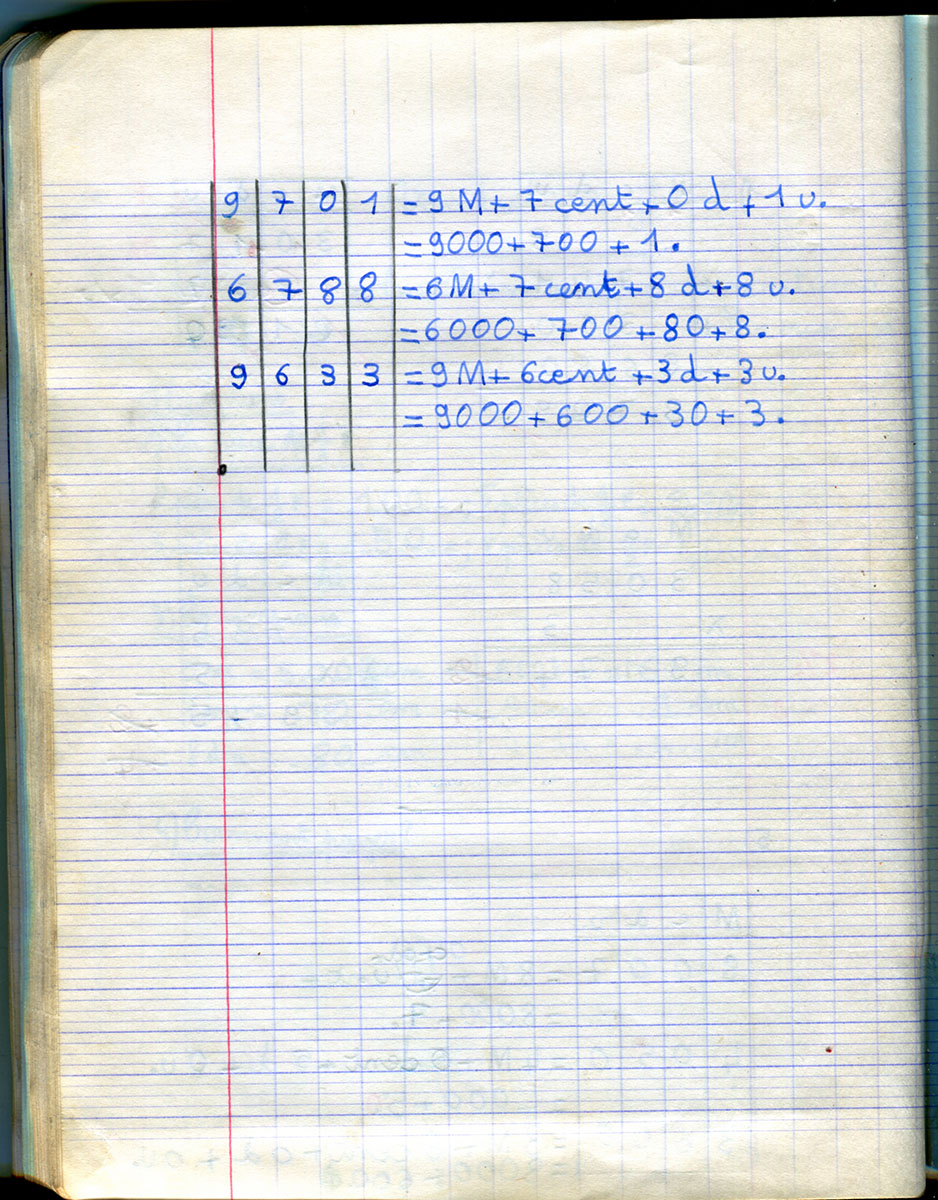 9 | 7 | 0 | 1 | = 9 M + 7 cent + 0 d + 1 u.
= 9000 + 700 + 1.
6 | 7 | 8 | 8 | = 6M + 7 cent + 8 d + 8 u.
= 6000 + 700 + 80 + 8.
9 | 6 | 3 | 3 | = 9M + 6cent + 3d + 3u.
= 9000 + 600 + 30 + 3.